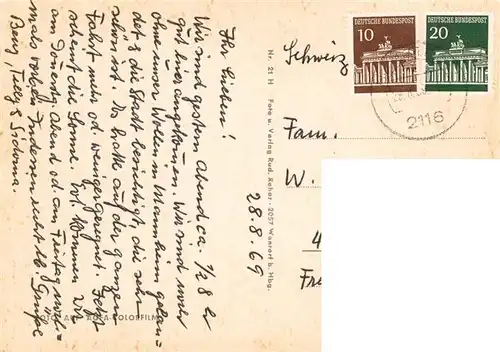 Ihr Lieben!
Wir sind gestern Abend ca. 1/2 8 h
gut hier angekommen. Wir sind noch
ohne unser Wollen in Mannheim gelan-
det & die Stadt besichtigt, die sehr
schön ist. Es hatte auf der ganzen
Fahrt mehr od. weniger geregnet. Jetzt
scheint die Sonne. Evt. kommen wir
am Donnerstg. Abend od. am Freitag
mals
28.8.69
Nr. 21 H Foto u. Verlag Rud. Reher - 2057 Wentorf b. Hbg.
AGFA-COLORFILM
DEUTSCHE BUNDESPOST
10
DEUTSCHE BUNDESPOST
20
2116
Schweiz
Fam.
W.
4
Fre